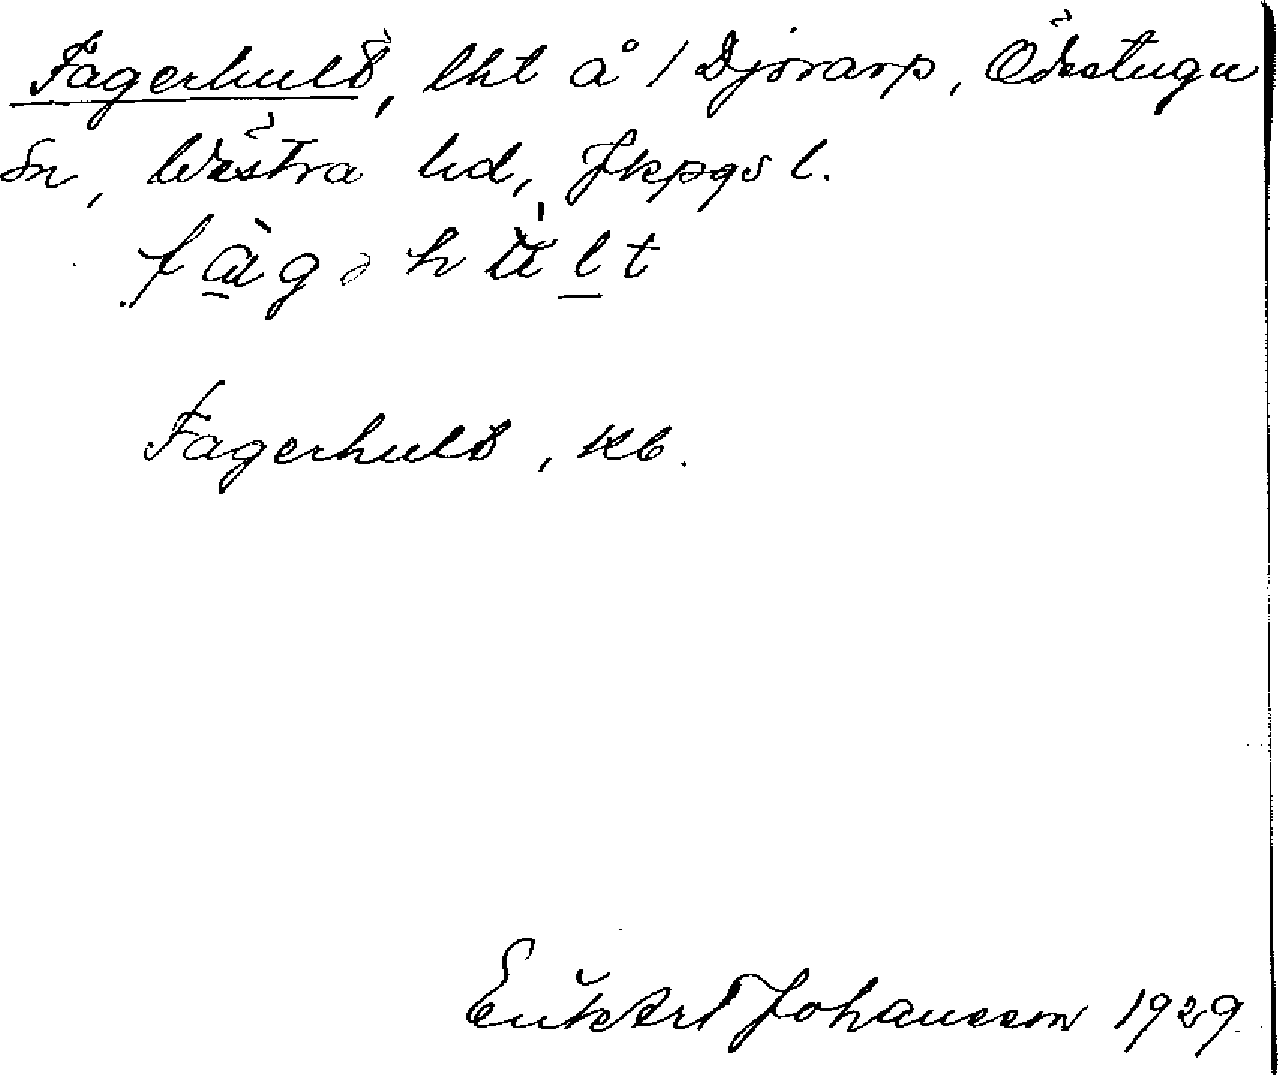 Fagerhult, lht å / Djörarp, Ödestugu
sn, Västra hd, Jkpgs l.
fàgəhùlt
Fagerhult, kb.
Johansson 1929